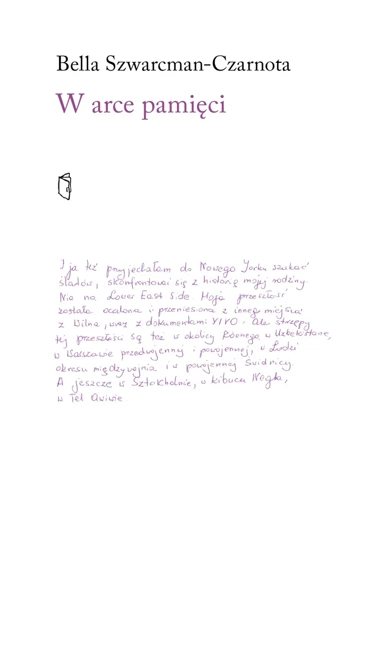 Bella Szwarcman-Czarnota
W arce pamięci
I ja też przyjechałam do Nowego Jorku szukać
śladów, skonfrontować się z historią mojej rodziny.
Nie na Lower East Side. Moja przeszłość
została ocalona i przeniesiona z innego miejsca:
z Wilna, wraz z dokumentami YIVO. Ale strzępy
tej przeszłości są też w okolicy Równego, w Uzbekistanie,
w Warszawie przedwojennej i powojennej, w Łodzi
okresu międzywojnia i w powojennej Świdnicy.
A jeszcze w Sztokholmie, w kibucu Negba,
w Tel Awiwie